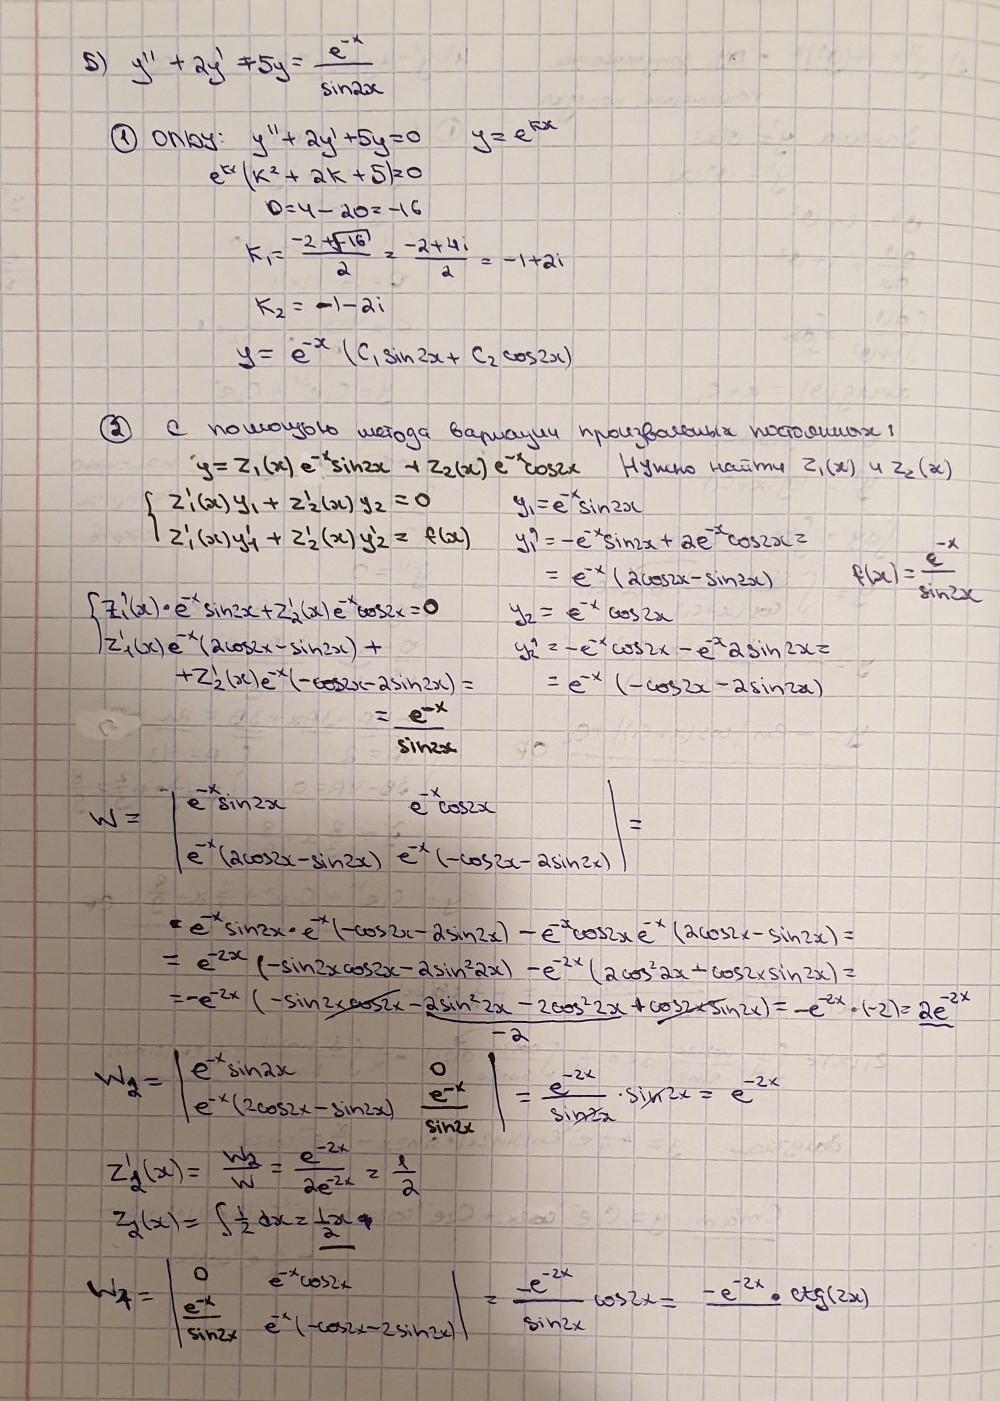 5) y'' + 2y' + 5y = e^{-x} / sin2x
① ОЛДУ: y'' + 2y' + 5y = 0    y = e^{kx}
e^{kx}(k² + 2k + 5) = 0
D = 4 - 20 = -16
K₁ = (-2 + √-16) / 2 = (-2 + 4i) / 2 = -1 + 2i
K₂ = -1 - 2i
y = e^{-x} (C₁ sin2x + C₂ cos2x)
② С помощью метода вариации произвольных постоянных:
y = Z₁(x) e^{-x} sin2x + Z₂(x) e^{-x} cos2x    Нужно найти Z₁(x) и Z₂(x)
{ Z₁'(x) y₁ + Z₂'(x) y₂ = 0    y₁ = e^{-x} sin2x
Z₁'(x) y₁' + Z₂'(x) y₂' = f(x)    y₁' = -e^{-x} sin2x + 2e^{-x} cos2x =
= e^{-x} (2cos2x - sin2x)    f(x) = e^{-x} / sin2x
{ Z₁'(x) · e^{-x} sin2x + Z₂'(x) e^{-x} cos2x = 0    y₂ = e^{-x} cos2x
Z₁'(x) e^{-x} (2cos2x - sin2x) +    y₂' = -e^{-x} cos2x - e^{-x} 2sin2x =
+ Z₂'(x) e^{-x} (-cos2x - 2sin2x) =    = e^{-x} (-cos2x - 2sin2x)
= e^{-x} / sin2x
W = | e^{-x} sin2x    e^{-x} cos2x | =
| e^{-x} (2cos2x - sin2x)    e^{-x} (-cos2x - 2sin2x) |
= e^{-x} sin2x · e^{-x} (-cos2x - 2sin2x) - e^{-x} cos2x e^{-x} (2cos2x - sin2x) =
= e^{-2x} (-sin2x cos2x - 2sin²2x) - e^{-2x} (2cos²2x + cos2x sin2x) =
= -e^{-2x} (-sin2x cos2x - 2sin²2x - 2cos²2x + cos2x sin2x) = -e^{-2x} · (-2) = 2e^{-2x}
-2
W₂ = | e^{-x} sin2x    0 |
| e^{-x} (2cos2x - sin2x)    e^{-x} / sin2x | = e^{-2x} / sin2x · sin2x = e^{-2x}
Z₂'(x) = W₂ / W = e^{-2x} / 2e^{-2x} = 1/2
Z₂(x) = ∫ 1/2 dx = 1/2 x
W₁ = | 0    e^{-x} cos2x |
| e^{-x} / sin2x    e^{-x} (-cos2x - 2sin2x) | = -e^{-2x} / sin2x cos2x = -e^{-2x} · ctg(2x)